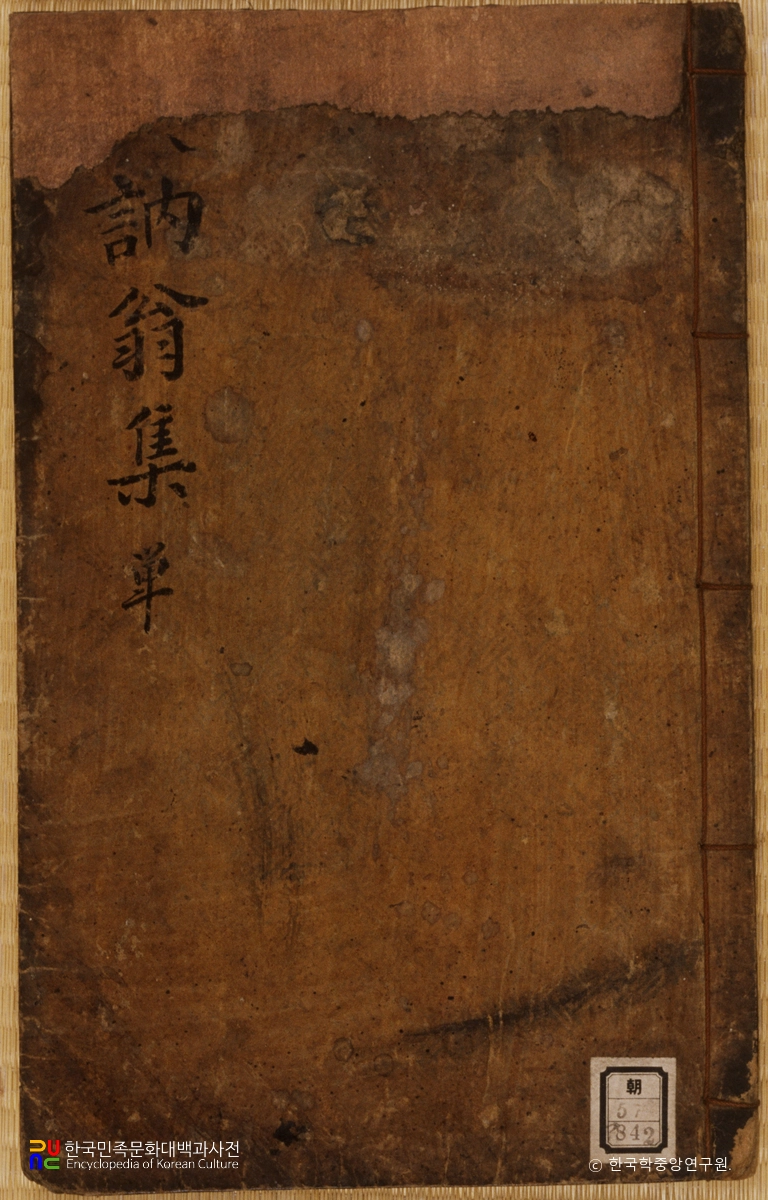 訥翁集 単
朝
한국민족문화대백과사전
Encyclopedia of Korean Culture
© 한국학중앙연구원.